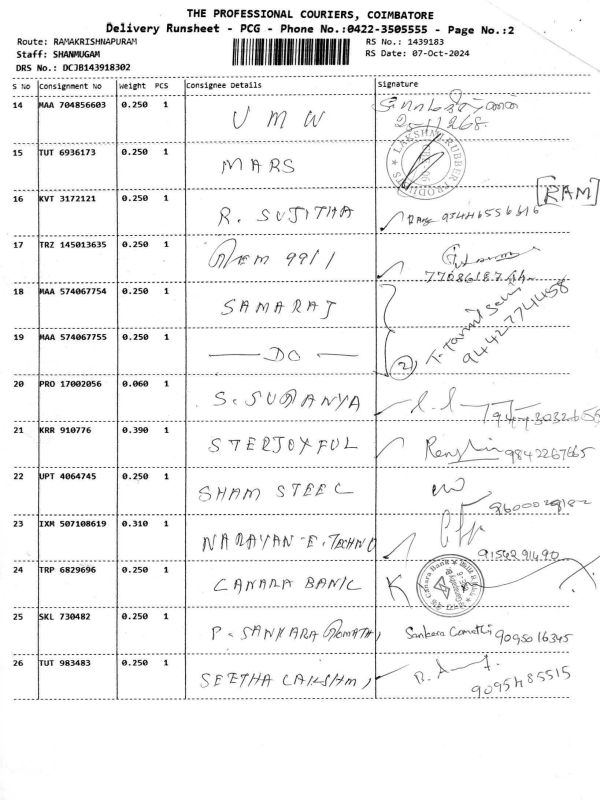 THE PROFESSIONAL COURIERS, COIMBATORE
Delivery Runsheet - PCG - Phone No.:0422-3505555 - Page No.:2
Route: RAMAKRISHNAPURAM
Staff: SHANMUGAM
DRS No.: DCJB143918302
RS No.: 1439183
RS Date: 07-Oct-2024
S No Consignment No Weight PCS Consignee Details Signature
14 MAA 704856603 0.250 1 U M W
LAKSHMI RUBBER PRODUCTS
15 TUT 6936173 0.250 1 MARS
[RAM]
16 KVT 3172121 0.250 1 R. SUJITHA
17 TRZ 145013635 0.250 1 GEM 99/1
18 MAA 574067754 0.250 1 SAMARAJ
T. Tamil Selvi
9442774458
19 MAA 574067755 0.250 1 — DO — 2
20 PRO 17002056 0.060 1 S. SUGANYA
21 KRR 910776 0.390 1 STERJOYFUL 9842267665
22 UPT 4064745 0.250 1 SHAM STEEL
23 IXM 507108619 0.310 1 NARAYAN-E-TECHNO
9154291490
24 TRP 6829696 0.250 1 CANARA BANK Canara Bank
25 SKL 730482 0.250 1 P. SANKARA GOMATHI Sankara Comathi 9095016345
26 TUT 983483 0.250 1 SEETHA LAKSHMI
9095485515